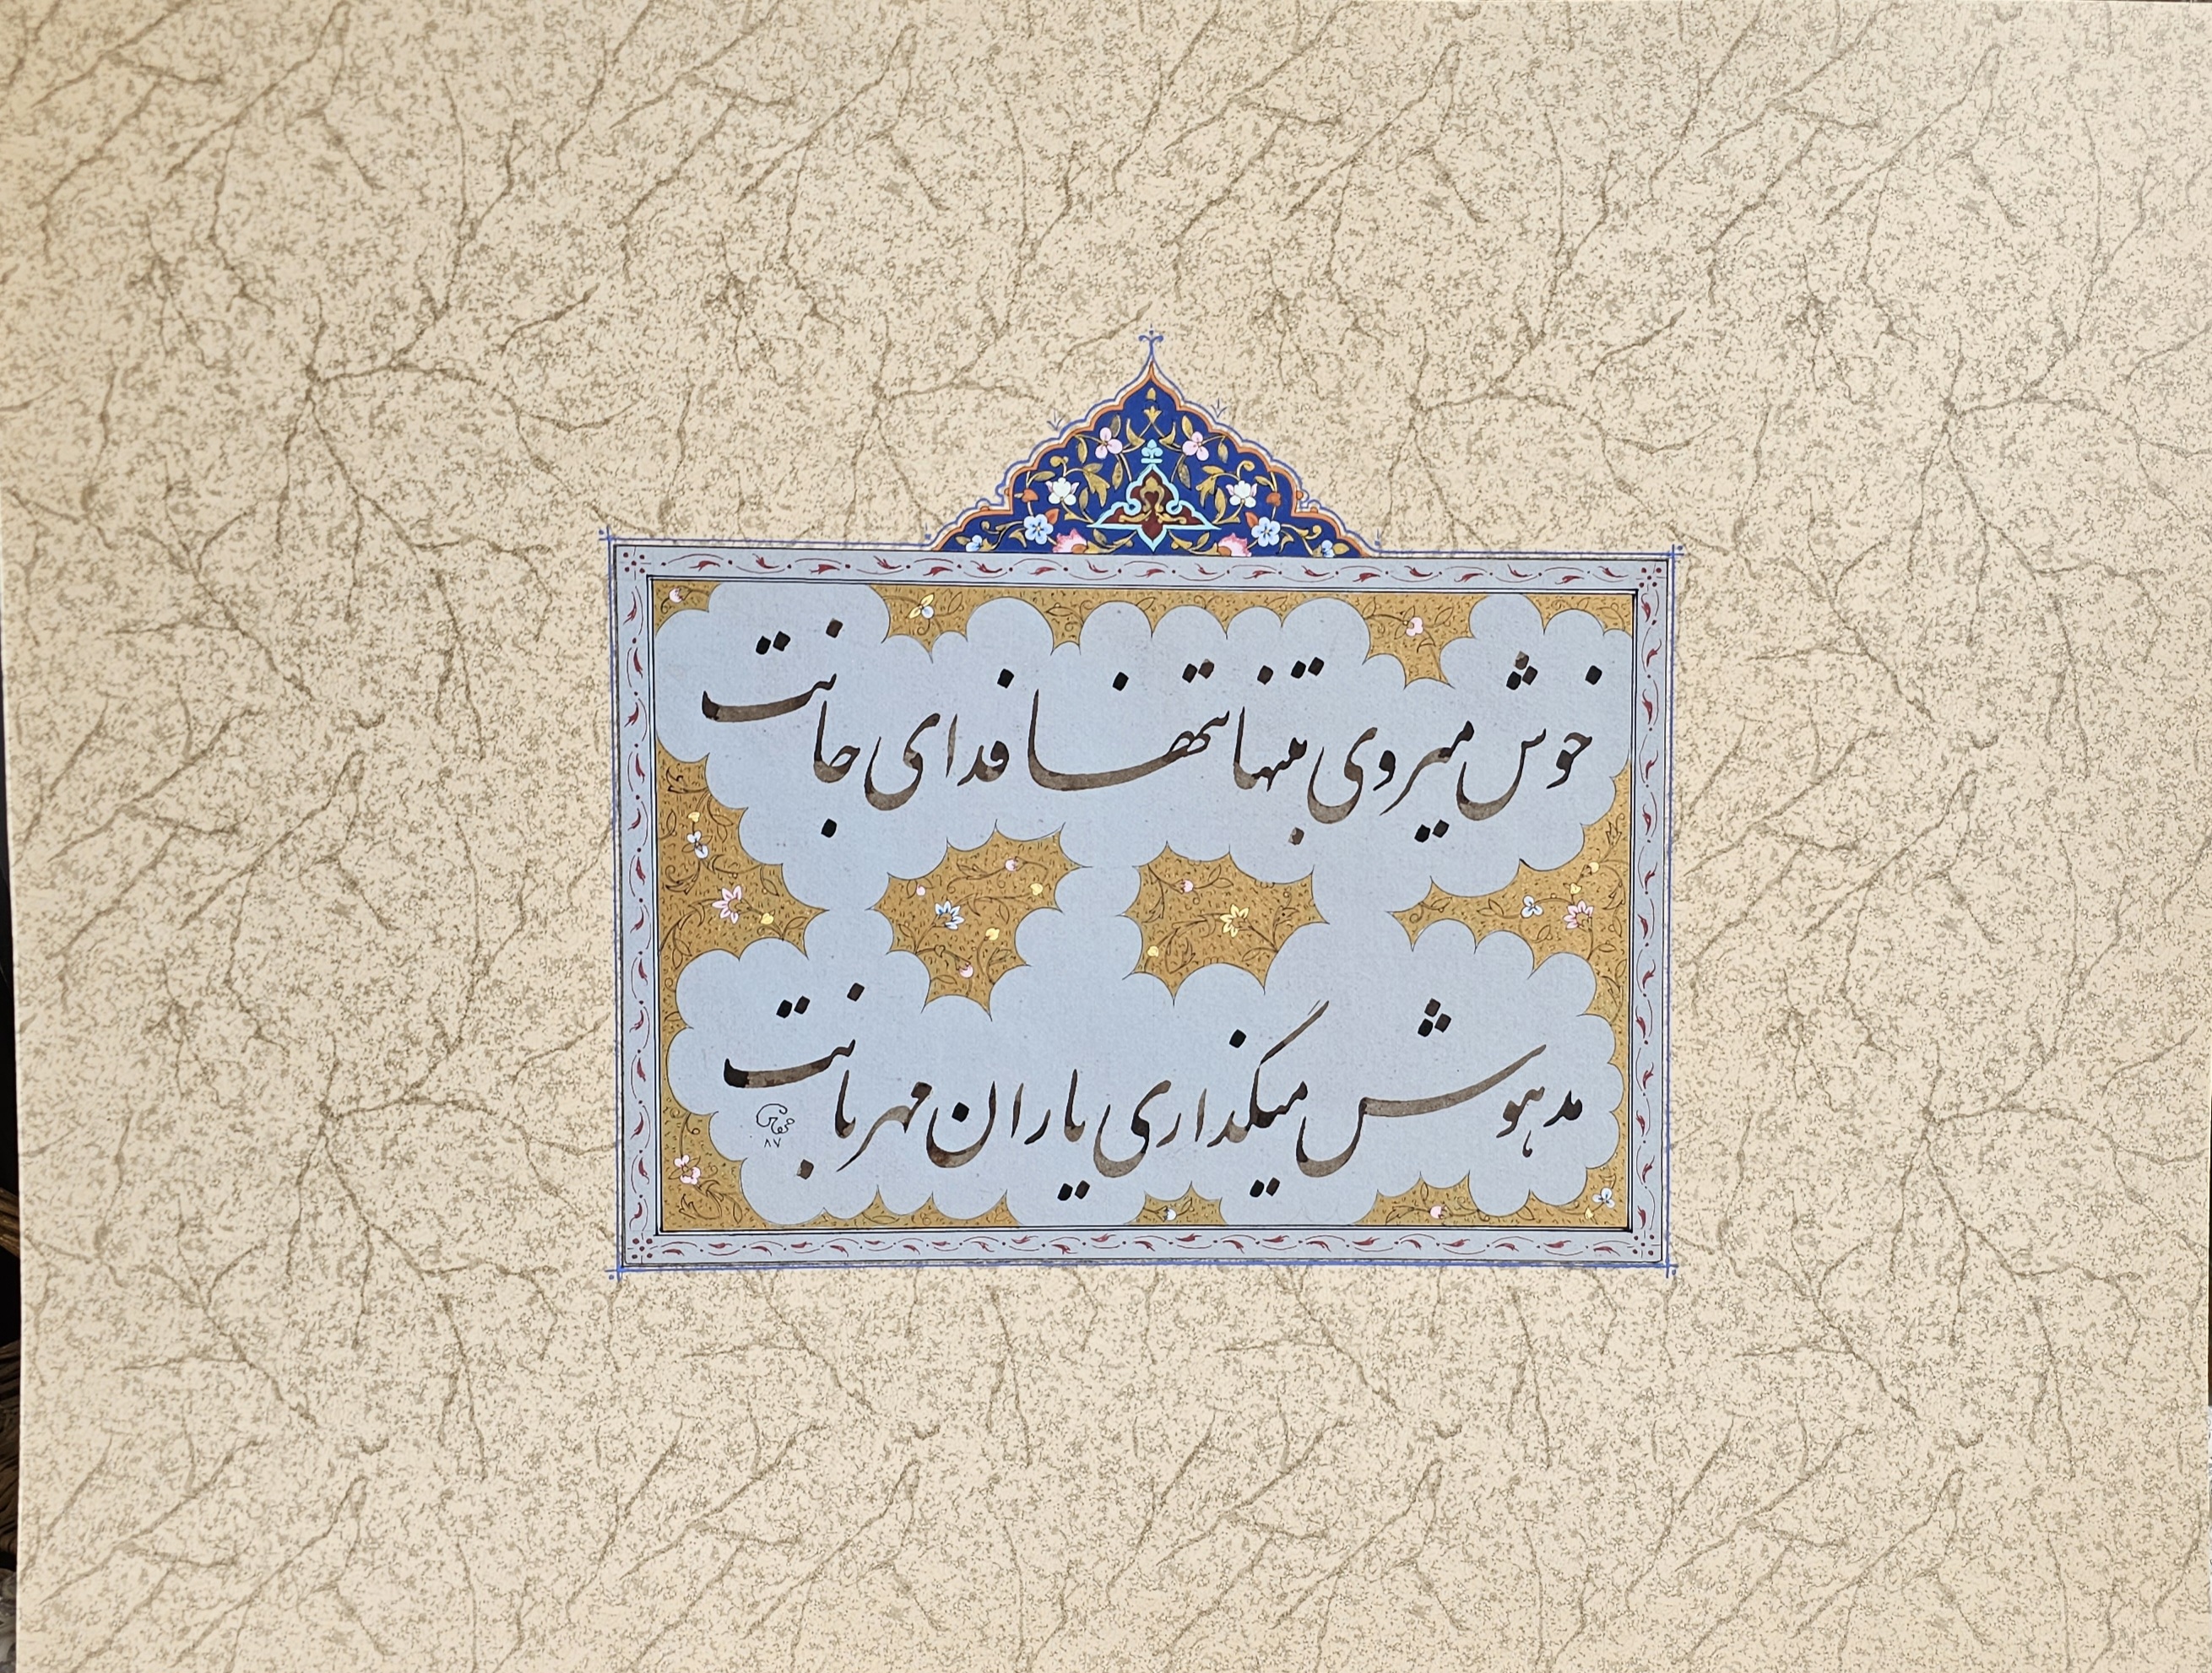 خوش میروی بتنها تنها فدای جانت
مدهوش میگذاری یاران مهربانت
۸۷